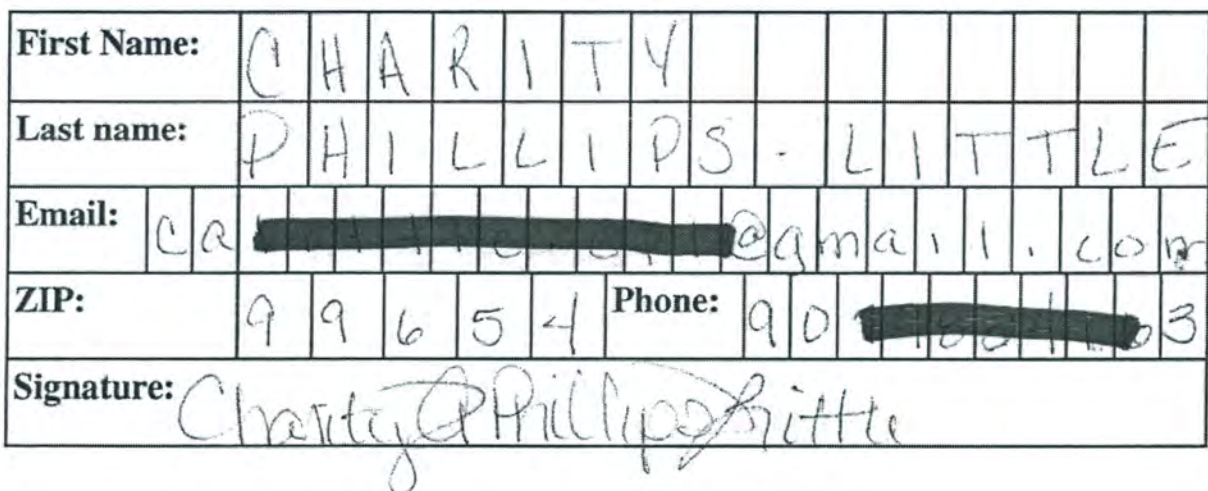 First Name: CHARITY
Last name: PHILLIPS-LITTLE
Email: ca @gmail.com
ZIP: 99654 Phone: 90 3
Signature: Charity A Phillips Little